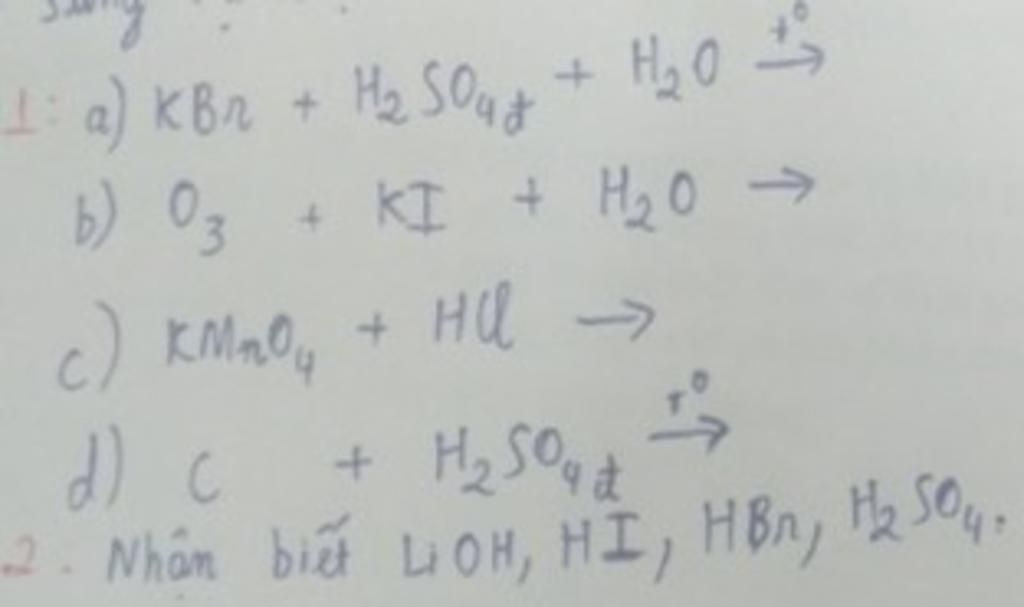 1: a) KBr + H₂SO₄đ + H₂O t° →
b) O₃ + KI + H₂O →
c) KMnO₄ + HCl →
d) C + H₂SO₄đ t° →
2. Nhận biết LiOH, HI, HBr, H₂SO₄.